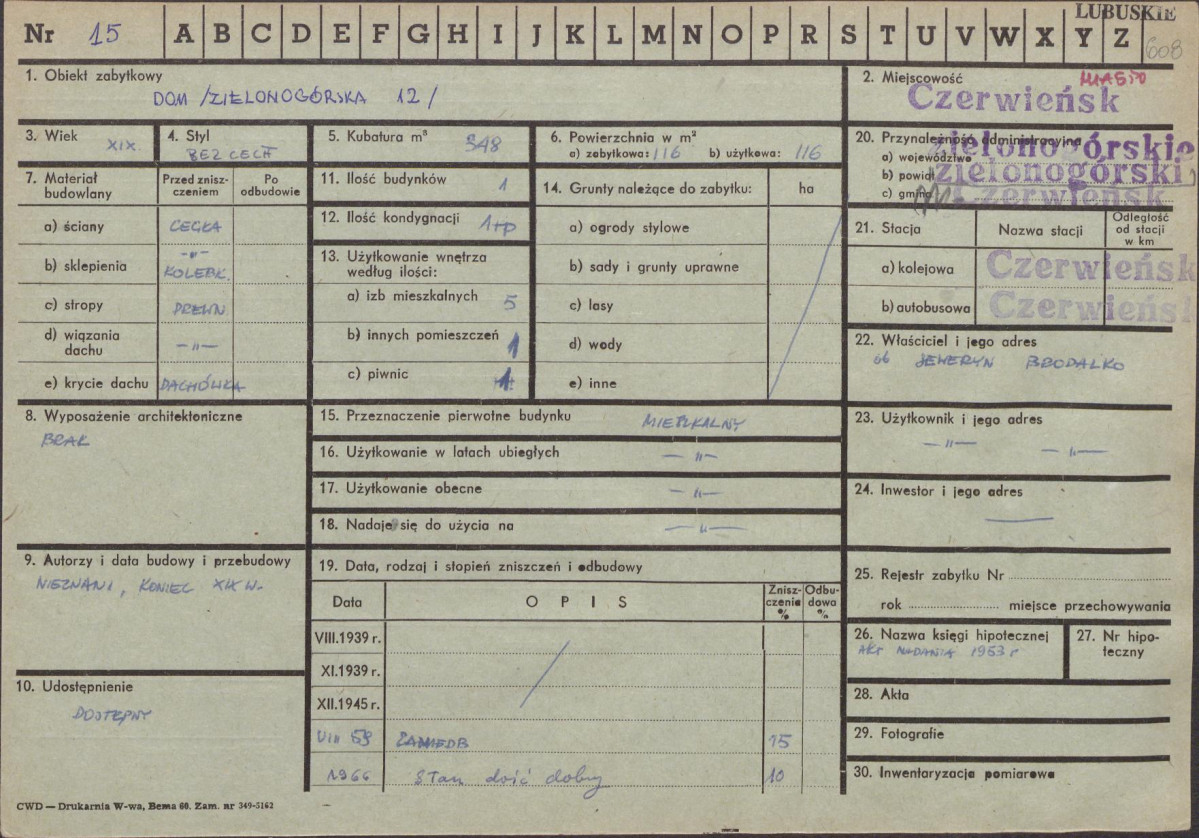 LUBUSKIE
Nr 15 A B C D E F G H I J K L M N O P R S T U V W X Y Z 608
1. Obiekt zabytkowy
DOM /ZIELONOGÓRSKA 12/
2. Miejscowość MIASTO
Czerwieńsk
3. Wiek XIX
4. Styl
BEZ CECH
5. Kubatura m³ 348
6. Powierzchnia w m²
a) zabytkowa: 116 b) użytkowa: 116
20. Przynależność administracyjna
a) województwo zielonogórskie
b) powiat zielonogórski
c) gmina Czerwieńsk
7. Materiał budowlany
Przed zniszczeniem
Po odbudowie
a) ściany CEGŁA
b) sklepienia -"- KOLEBK.
c) stropy DREWN
d) wiązania dachu -"-
e) krycie dachu DACHÓWKA
11. Ilość budynków 1
12. Ilość kondygnacji 1+p
13. Użytkowanie wnętrza według ilości:
a) izb mieszkalnych 5
b) innych pomieszczeń 1
c) piwnic 1
14. Grunty należące do zabytku: ha
a) ogrody stylowe
b) sady i grunty uprawne
c) lasy
d) wody
e) inne
21. Stacja
Nazwa stacji
Odległość od stacji w km
a) kolejowa Czerwieńsk
b) autobusowa Czerwieńsk
22. Właściciel i jego adres
SEWERYN BRODALKO
8. Wyposażenie architektoniczne
BRAK
15. Przeznaczenie pierwotne budynku MIESZKALNY
16. Użytkowanie w latach ubiegłych -"-
17. Użytkowanie obecne -"-
18. Nadaje się do użycia na -"-
23. Użytkownik i jego adres
-"- -"-
24. Inwestor i jego adres
9. Autorzy i data budowy i przebudowy
NIEZNANI, KONIEC XIX W.
19. Data, rodzaj i stopień zniszczeń i odbudowy
Data
OPIS
Zniszczenie %
Odbudowa %
VIII.1939 r.
XI.1939 r.
XII.1945 r.
VIII 59 ZANIEDB 15
1966 Stan dość dobry 10
25. Rejestr zabytku Nr
rok miejsce przechowywania
26. Nazwa księgi hipotecznej
AKT NADANIA 1953 r
27. Nr hipoteczny
10. Udostępnienie
DOSTĘPNY
28. Akta
29. Fotografie
30. Inwentaryzacja pomiarowa
CWD — Drukarnia W-wa, Bema 60. Zam. nr 349-5162